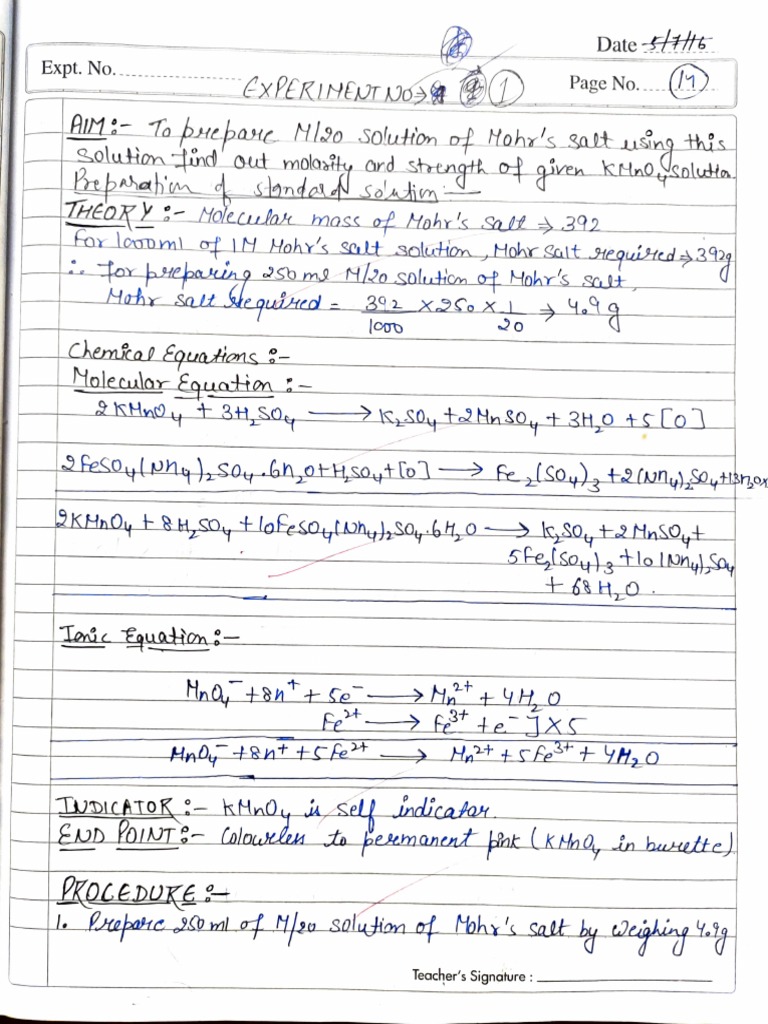 Date 5/7/16
Expt. No.
EXPERIMENT NO→ 1
Page No.
AIM:- To prepare M/20 solution of Mohr's salt using this
solution find out molarity and strength of given KMnO4 solution.
Preparation of standard solution:—
THEORY:- Molecular mass of Mohr's salt → 392
For 1000ml of 1M Mohr's salt solution, Mohr salt required → 392g
∴ for preparing 250 ml M/20 solution of Mohr's salt,
Mohr salt required = 392/1000 × 250 × 1/20 → 4.9 g
Chemical Equations :-
Molecular Equation :-
2KMnO4 + 3H2SO4 ⟶ K2SO4 + 2MnSO4 + 3H2O + 5[O]
2FeSO4(NH4)2SO4.6H2O + H2SO4 + [O] ⟶ Fe2(SO4)3 + 2(NH4)2SO4 + 13H2O×
2KMnO4 + 8H2SO4 + 10FeSO4(NH4)2SO4.6H2O ⟶ K2SO4 + 2MnSO4+
5Fe2(SO4)3 + 10(NH4)2SO4
+ 68H2O.
Ionic Equation:-
MnO4⁻ + 8H⁺ + 5e⁻ ⟶ Mn²⁺ + 4H2O
Fe²⁺ ⟶ Fe³⁺ + e⁻ ] × 5
MnO4⁻ + 8H⁺ + 5Fe²⁺ ⟶ Mn²⁺ + 5Fe³⁺ + 4H2O
INDICATOR :- KMnO4 is self indicator.
END POINT:- Colourless to permanent pink (KMnO4 in burette)
PROCEDURE:-
1. Prepare 250 ml of M/20 solution of Mohr's salt by weighing 4.9g
Teacher's Signature :